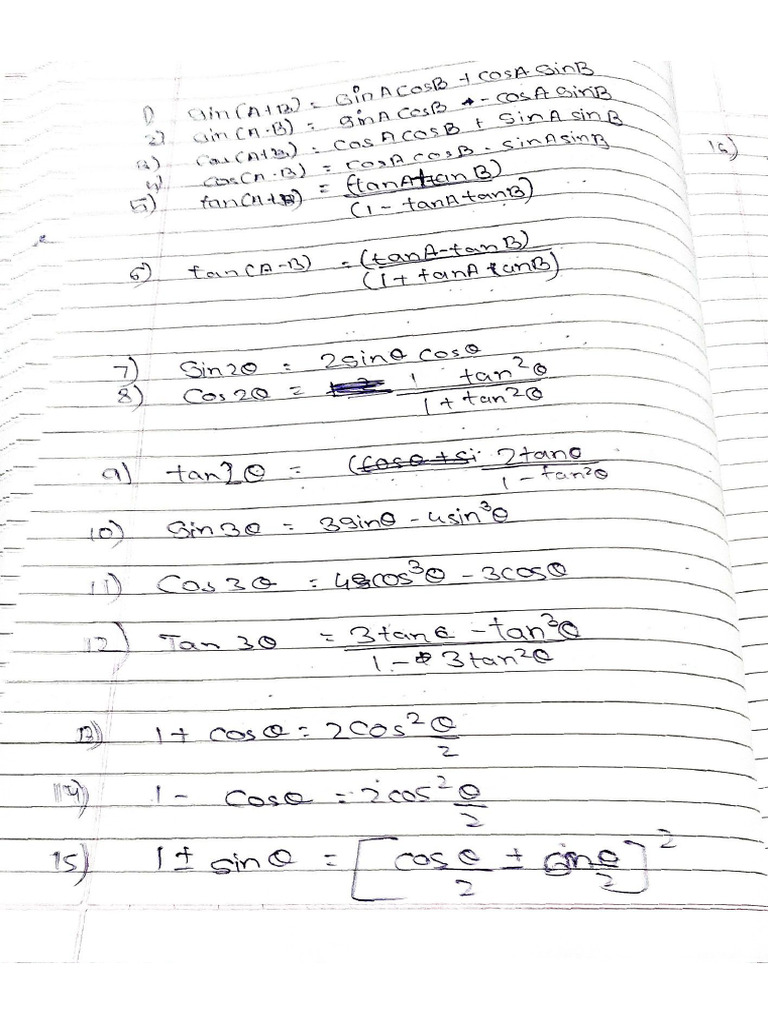 1) sin(A+B) = sinAcosB + cosA sinB
2) sin(A-B) = sinAcosB - cosA sinB
3) cos(A+B) = cosAcosB + sinA sinB
4) cos(A-B) = cosAcosB - sinAsinB
5) tan(A+B) = (tanA+tanB)
(1 - tanA tanB)
16)
6) tan(A-B) = (tanA-tanB)
(1 + tanA tanB)
7) Sin2θ = 2sinθ cosθ
8) Cos2θ = 1 tan²θ
1 + tan²θ
9) tan2θ = (cosθ + si 2tanθ
1 - tan²θ
10) Sin3θ = 3sinθ - 4sin³θ
11) Cos3θ = 4cos³θ - 3cosθ
12) Tan3θ = 3tanθ - tan³θ
1 - 3tan²θ
13) 1 + cosθ = 2cos²θ
2
14) 1 - cosθ = 2cos²θ
2
15) 1 ± sinθ = [cosθ ± sinθ]²
2 2